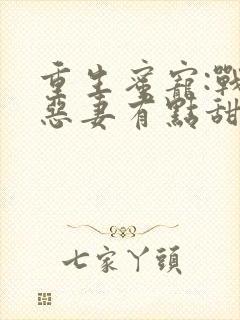 重生蜜寵:戰
惡妻有點甜
七家丫頭